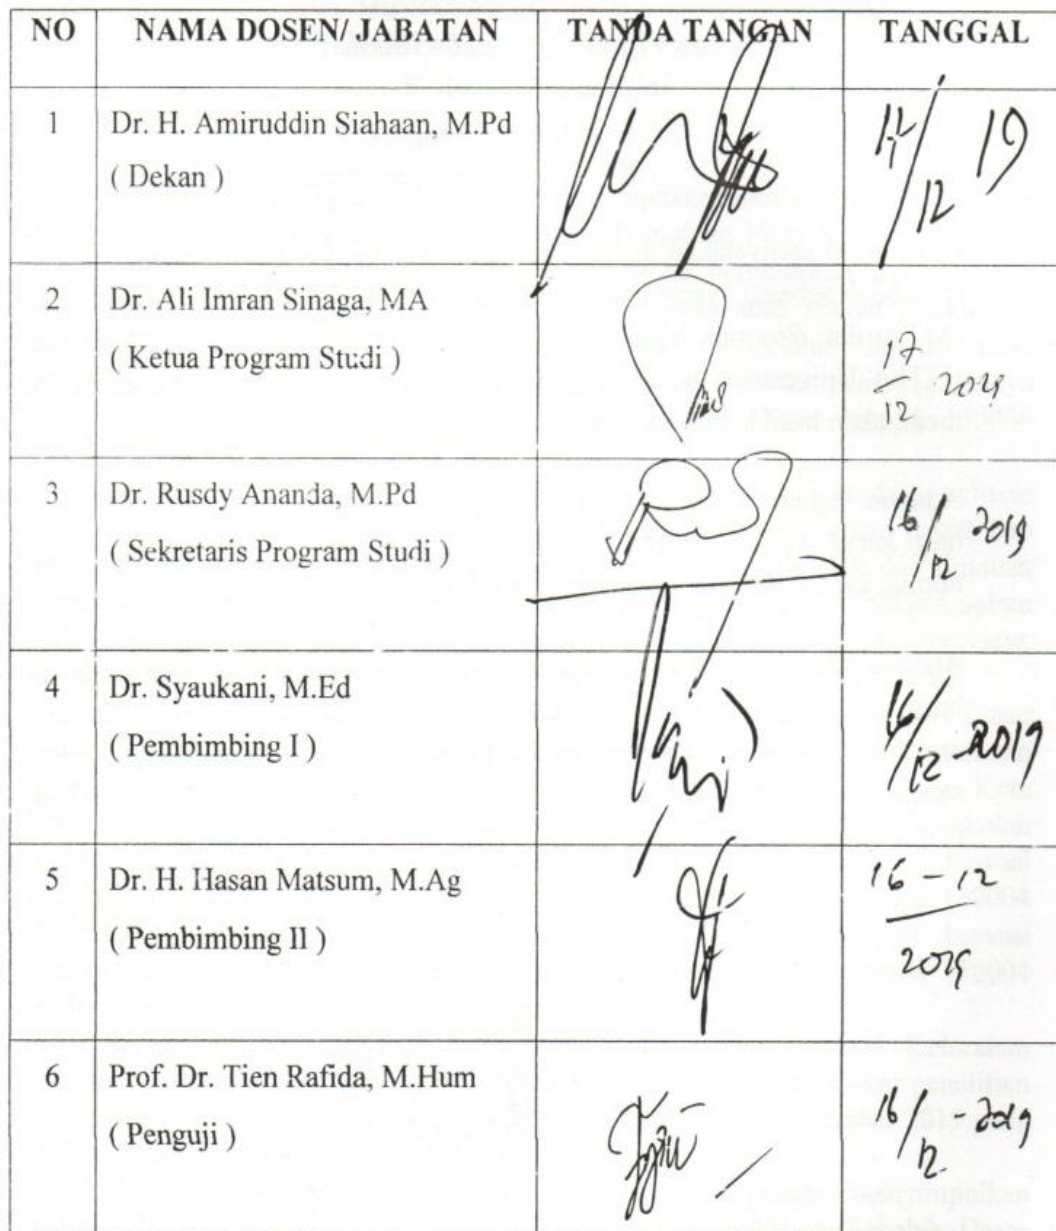 NO NAMA DOSEN/ JABATAN TANDA TANGAN TANGGAL
1 Dr. H. Amiruddin Siahaan, M.Pd
( Dekan )
12 19
2 Dr. Ali Imran Sinaga, MA
( Ketua Program Studi )
17
12 2019
3 Dr. Rusdy Ananda, M.Pd
( Sekretaris Program Studi )
16/12 2019
4 Dr. Syaukani, M.Ed
( Pembimbing I )
16/12 2019
5 Dr. H. Hasan Matsum, M.Ag
( Pembimbing II )
16 - 12
2019
6 Prof. Dr. Tien Rafida, M.Hum
( Penguji )
16/12 - 2019